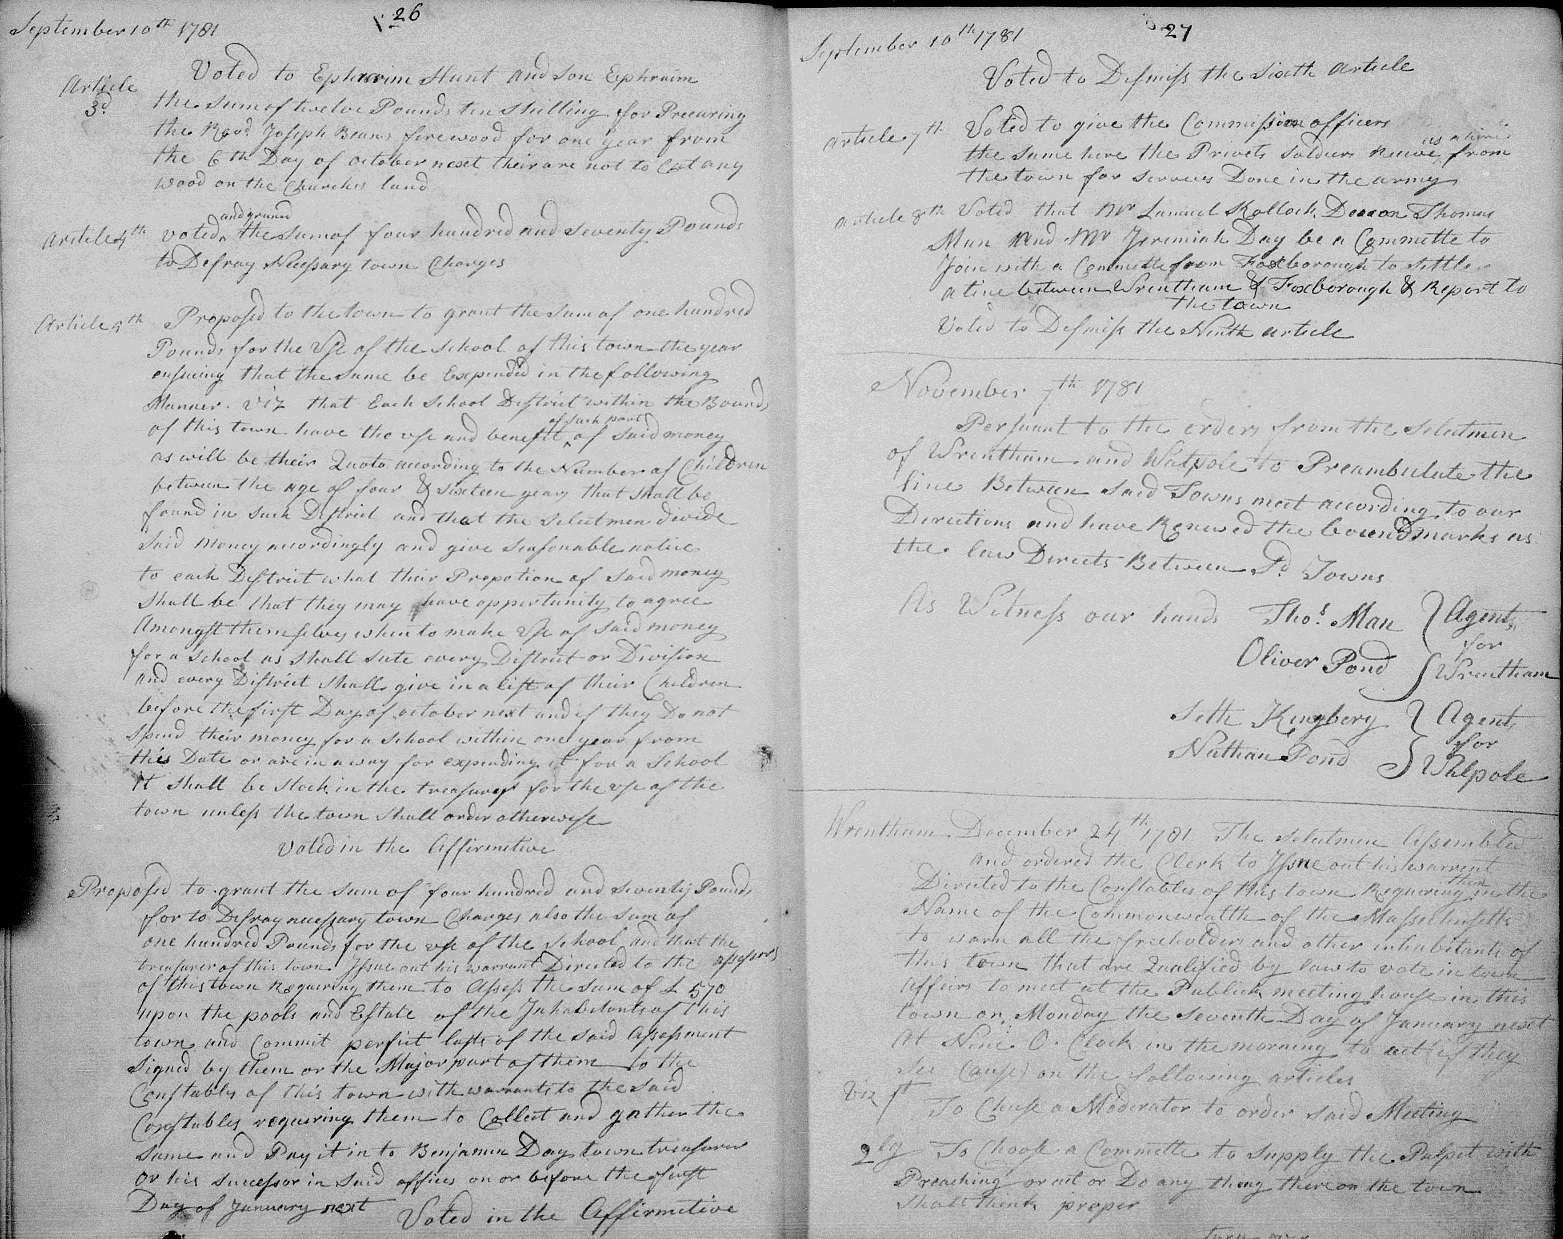 September 10th 1781
26
Article 3d
Voted to Ephraim Hunt and son Ephraim
the sum of twelve Pounds ten shilling for Procuring
the Revd Joseph Beans firewood for one year from
the 6th Day of october next their are not to Cut any
wood on the Churches land
Article 4th
and grant
voted the sum of four hundred and seventy Pounds
to Defray Necessary town Charges
Article 5th
Proposed to the town to grant the sum of one hundred
Pounds for the use of the school of this town the year
ensuing that the same be Expended in the following
Manner. viz that Each School District within the Bounds
of such part
of this town have the use and benefit of said money
as will be their Quota according to the Number of Children
between the age of four & sixteen years that shall be
found in such District and that the selectmen divide
said money accordingly and give seasonable notice
to each District what their Propotion of said money
shall be that they may have opportunity to agree
Amongst themselves when to make use of said money
for a school as shall sute every District or Division
and every District shall give in a list of their Children
before the first Day of october next and if they Do not
spend their money for a school within one year from
this Date or are in a way for expending it for a School
it shall be stock in the treasurey for the use of the
town unless the town shall order otherwise
voted in the Affirmitive
Proposed to grant the sum of four hundred and seventy Pounds
for to Defray necessary town Charges also the sum of
one hundred Pounds for the use of the school and that the
treasurer of this town Issue out his warrant Directed to the assessors
of this town Requiring them to Assess the sum of £ 570
upon the pools and Estate of the Inhabitants of this
town and Commit perfect lists of the said Assessment
signed by them or the Major part of them to the
Constables of this town with warrants to the said
Constables requiring them to Collect and gather the
same and Pay it in to Benjamin Day town treasurer
or his successor in said offices on or before the first
Day of January next Voted in the Affirmitive
September 10th 1781
27
Voted to Desmiss the sixth article
article 7th
Voted to give the Commission officers
as a hire
the same hire the Privets soldiers receive from
the town for services Done in the army
article 8th
Voted that Mr Samuel Kollock Deacon Thomas
Man and Mr Jeremiah Day be a Committe to
Join with a Committe from Foxborough to settle
a line between Wrentham & Foxborough & Report to
the town
Voted to Desmiss the Ninth article
November 7th 1781
Persuant to the orders from the selectmen
of Wrentham and Walpole to Preambulate the
line Between said Towns meet according to our
Directions and have Renewed the bound marks as
the law Directs Between Sd Towns
As Witness our hands
Thos Man
Oliver Pond
Agents
for
Wrentham
Seth Kingbery
Nathan Pond
Agents
for
Walpole
Wrentham December 24th 1781 The selectmen Assembled
and ordered the Clerk to Issue out his warrent
Directed to the Constables of this town Requiring them in the
Name of the Commonwealth of the Massachusetts
to warn all the freeholders and other inhabitants of
this town that are Qualified by law to vote in town
affairs to meet at the Publick meeting house in this
town on Monday the seventh Day of January next
At Nine O. Clock in the morning to act (if they
see Cause) on the following articles
Viz 1st To Chuse a Moderator to order said Meeting
2ly To Choose a Committe to supply the Pulpit with
Preaching or act or Do any thing thereon the town
shall think proper
turn over